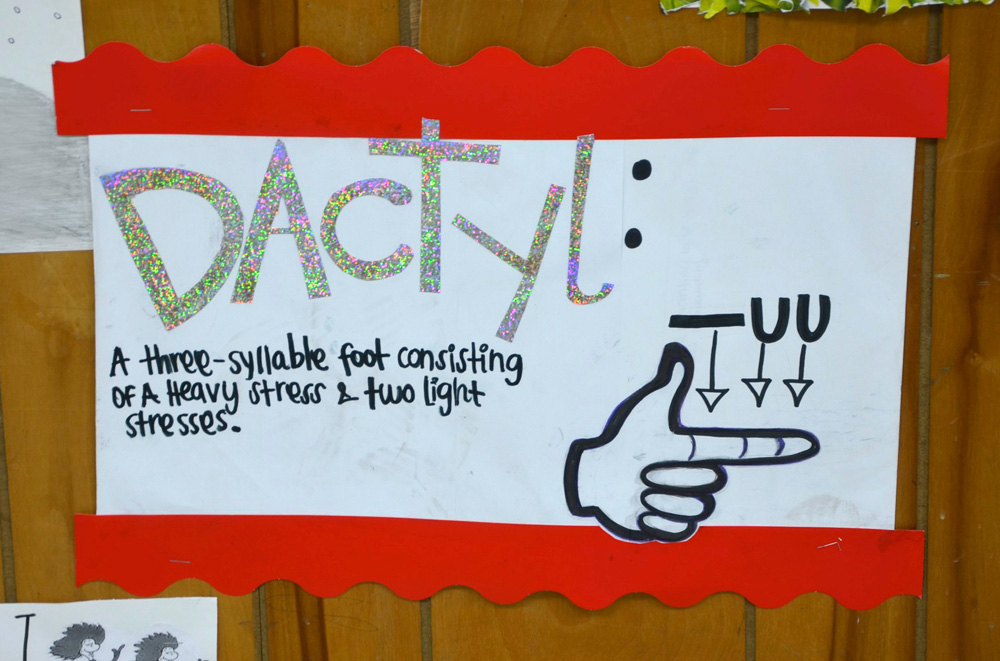 DAcTyl :
A three-syllable foot consisting
of A Heavy stress & two light
stresses.
— U U
I